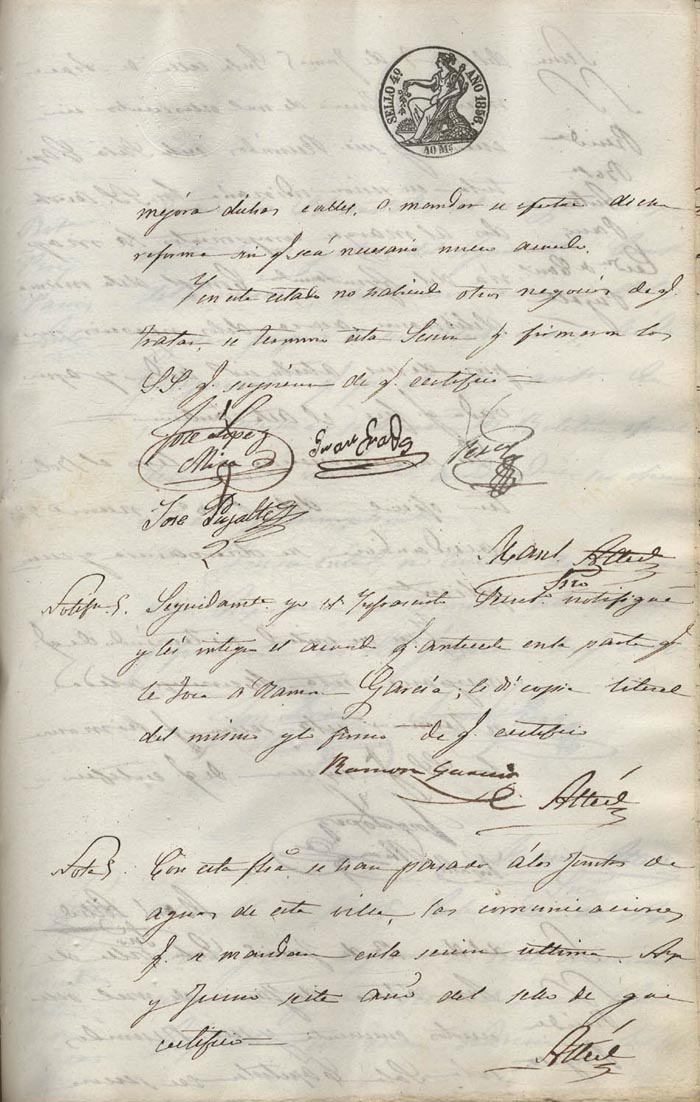 SELLO 4º AÑO 1856
40 Ms.
mejora dichas calles, o mandar se efectue
reforma sin q. seá necesario nuevo acuerdo.
Y en este estado no habiendo otros negocios de q.
tratar, se termino esta Sesion y firmaron los
SS q. supieron de q. certifico
José Lopez
Mira
José Pujalte
Man.l Alted
Srio
Notifn. Seguidamte. yo el Infrascrito notifiqué
y leí integro el acuerdo q. antecede en la parte q.
le toca á Ramon García, le dí copia literal
del mismo y lo firmo de q. certifico
Ramon Garcia
Alted
Nota Con esta fha. se han pasado á los Juntos de
aguas de esta villa, las comunicaciones
q. se mandan en la sesion ultima.
y Junio siete año del sello de que
certifico
Alted